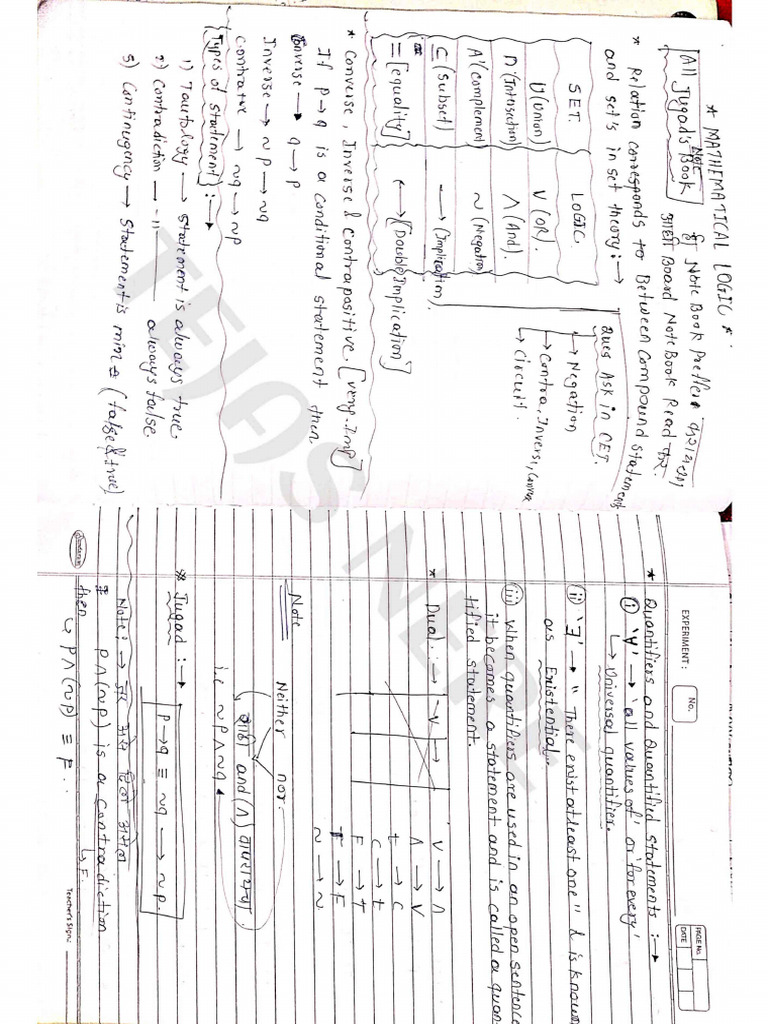 * MATHEMATICAL LOGIC *
All Jugad's Note Book
Note Book Preffer
Board NoteBook Read
* Relation corresponds to Between Compound statement
and set's in set theory :→
SET. LOGIC.
U (Union) V (OR).
∩ (Intersection) Λ (And).
A' (complement) ~ (Negation)
⊂ (Subset) → (Implication).
= [equality] ↔ [Double Implication]
Ques Ask in CET.
→ Negation
→ Contra, Inversi, Conve
→ Circuit.
* Converse, Inverse & contrapositive. [very. Imp]
If p→q is a conditional statement then
Converse → q → p
Inverse → ~p → ~q
contrative → ~q → ~p
[Types of Statement] :→
1) Tautology → statement is always true.
2) contradiction → –"– always false.
3) Contingency → Statement is min (false & true)
TEJAS NERE
EXPERIMENT: No.
PAGE No.
DATE
* Quantifiers and Quantified statements :→
(i) '∀' → 'all values of' or 'for every'
↳ Universal quantifier.
(ii) '∃' → " There exist atleast one" & is known
as Existential.
(iii) when quantifiers are used in an open sentence
it becomes a statement and is called a quan
tified statement.
* Dual : → ~ V →
V → Λ
Λ → V
t → c
c → t
F → T
T → F
~ → ~
Note
Neither nor.
साठी and (Λ) वापरायचा
i.e ~p Λ ~q
* Jugad :→
p→q ≡ ~q → ~p.
Note : → जर असे दिले असेल
p Λ (~p) is a contradiction
↳ F.
then
↳ p Λ (~p) ≡ F.
Teacher's Sign.: